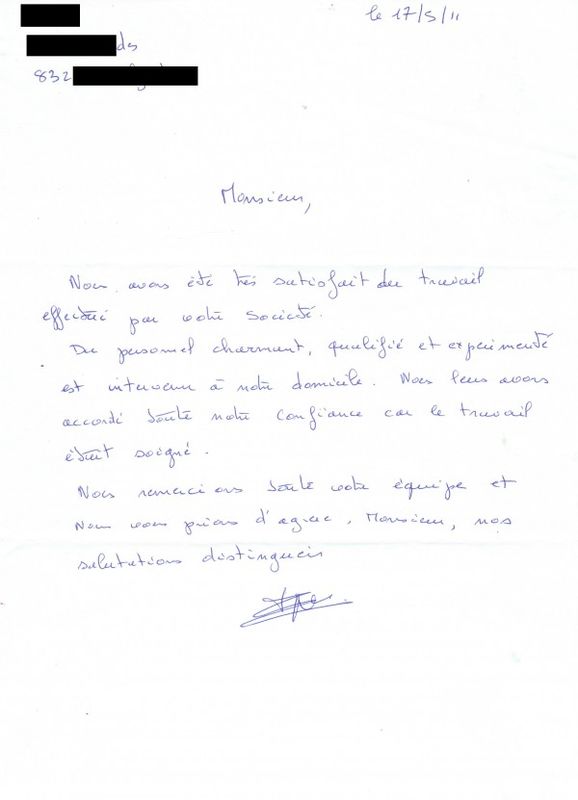 le 17/5/11
des
832
Monsieur,
Nous avons été très satisfait du travail
effectué par votre société.
Du personnel charmant, qualifié et expérimenté
est intervenu à notre domicile. Nous leurs avons
accordé toute notre confiance car le travail
était soigné.
Nous remercions toute votre équipe et
Nous vous prions d'agréer, Monsieur, nos
salutations distinguées